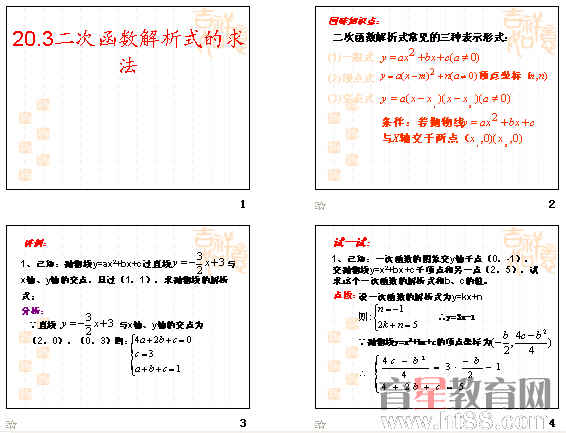 20.3二次函数解析式的求
法
1
回味知识点:
二次函数解析式常见的三种表示形式:
(1)一般式 y=ax²+bx+c(a≠0)
(2)顶点式 y=a(x-m)²+n(a≠0)顶点坐标(m,n)
(3)交点式 y=a(x-x₁)(x-x₂)(a≠0)
条件:若抛物线y=ax²+bx+c
与X轴交于两点(x₁,0)(x₂,0)
2
评例:
1、已知:抛物线y=ax²+bx+c过直线 y=-3/2x+3 与
x轴、y轴的交点,且过(1,1),求抛物线的解析
式;
分析:
∵直线 y=-3/2x+3 与x轴、y轴的交点为
(2,0),(0,3)则:
4a+2b+c=0
c=3
a+b+c=1
3
试一试:
1、已知:一次函数的图象交y轴于点(0,-1),
交抛物线y=x²+bx+c于顶点和另一点(2,5),试
求这个一次函数的解析式和b、c的值。
点拨:设一次函数的解析式为y=kx+n
则:
n=-1
2k+n=5
∴y=3x-1
∵抛物线y=x²+bx+c的顶点坐标为(-b/2,(4c-b²)/4)
∴
(4c-b²)/4=3·(-b)/2-1
4+2b+c=5
4
育星教育网
www.ht88.com